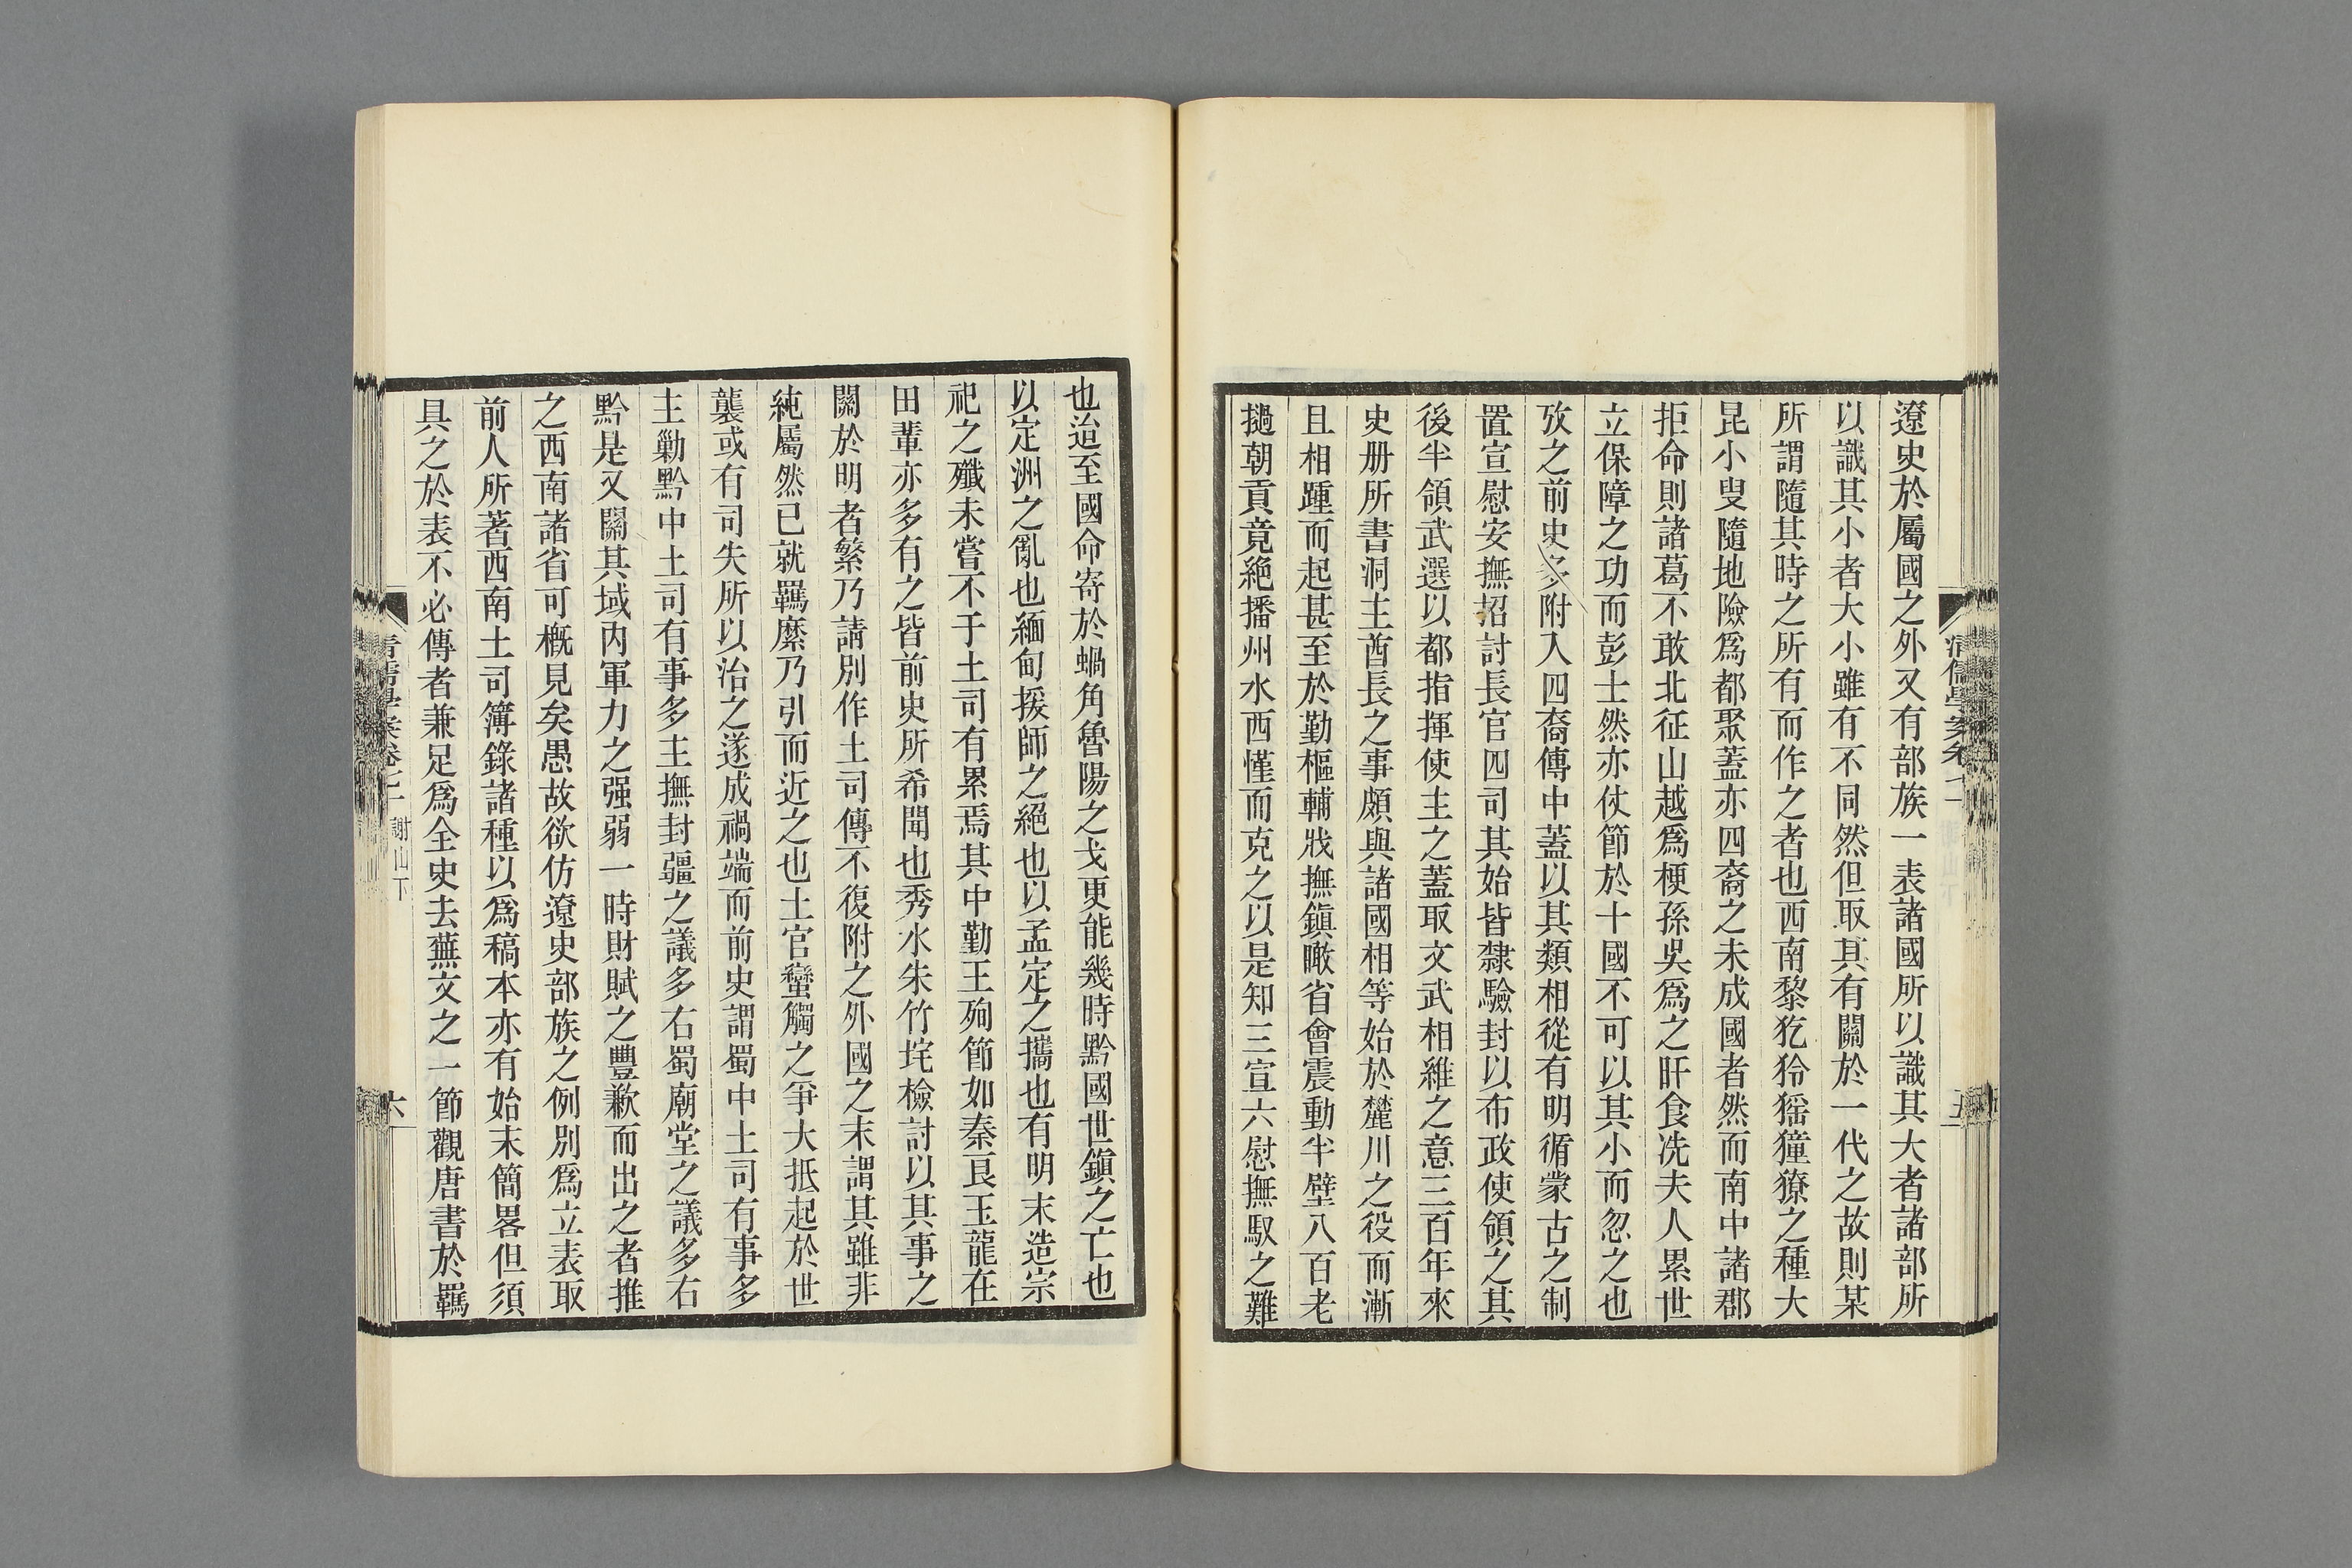 遼史於屬國之外又有部族一表諸國所以識其大者諸部所
以識其小者大小雖有不同然但取其有關於一代之故則某
所謂隨其時之所有而作之者也西南黎犵狑猺獞獠之種大
昆小叟隨地險爲都聚蓋亦四裔之未成國者然而南中諸郡
拒命則諸葛不敢北征山越爲梗孫吳爲之旰食冼夫人累世
立保障之功而彭士然亦仗節於十國不可以其小而忽之也
攷之前史多附入四裔傳中蓋以其類相從有明循蒙古之制
置宣慰安撫招討長官四司其始皆隸驗封以布政使領之其
後半領武選以都指揮使主之蓋取文武相維之意三百年來
史册所書洞主酋長之事頗與諸國相等始於麓川之役而漸
且相踵而起甚至於勤樞輔戕撫鎭瞰省會震動半壁八百老
撾朝貢竟絕播州水西僅而克之以是知三宣六慰撫馭之難
也迨至國命寄於蝸角魯陽之戈更能幾時黔國世鎭之亡也
以定洲之亂也緬甸援師之絕也以孟定之攜也有明末造宗
祀之殲未嘗不于土司有累焉其中勤王殉節如秦良玉龍在
田輩亦多有之皆前史所希聞也秀水朱竹垞檢討以其事之
關於明者繁乃請別作土司傳不復附之外國之末謂其雖非
純屬然已就羈縻乃引而近之也土官蠻觸之爭大抵起於世
襲或有司失所以治之遂成禍端而前史謂蜀中土司有事多
主勦黔中土司有事多主撫封疆之議多右蜀廟堂之議多右
黔是又關其域內軍力之强弱一時財賦之豐歉而出之者推
之西南諸省可槪見矣愚故欲仿遼史部族之例別爲立表取
前人所著西南土司簿錄諸種以爲稿本亦有始末簡畧但須
具之於表不必傳者兼足爲全史去蕪文之一節觀唐書於羈
清儒學案卷七十
謝山下
六